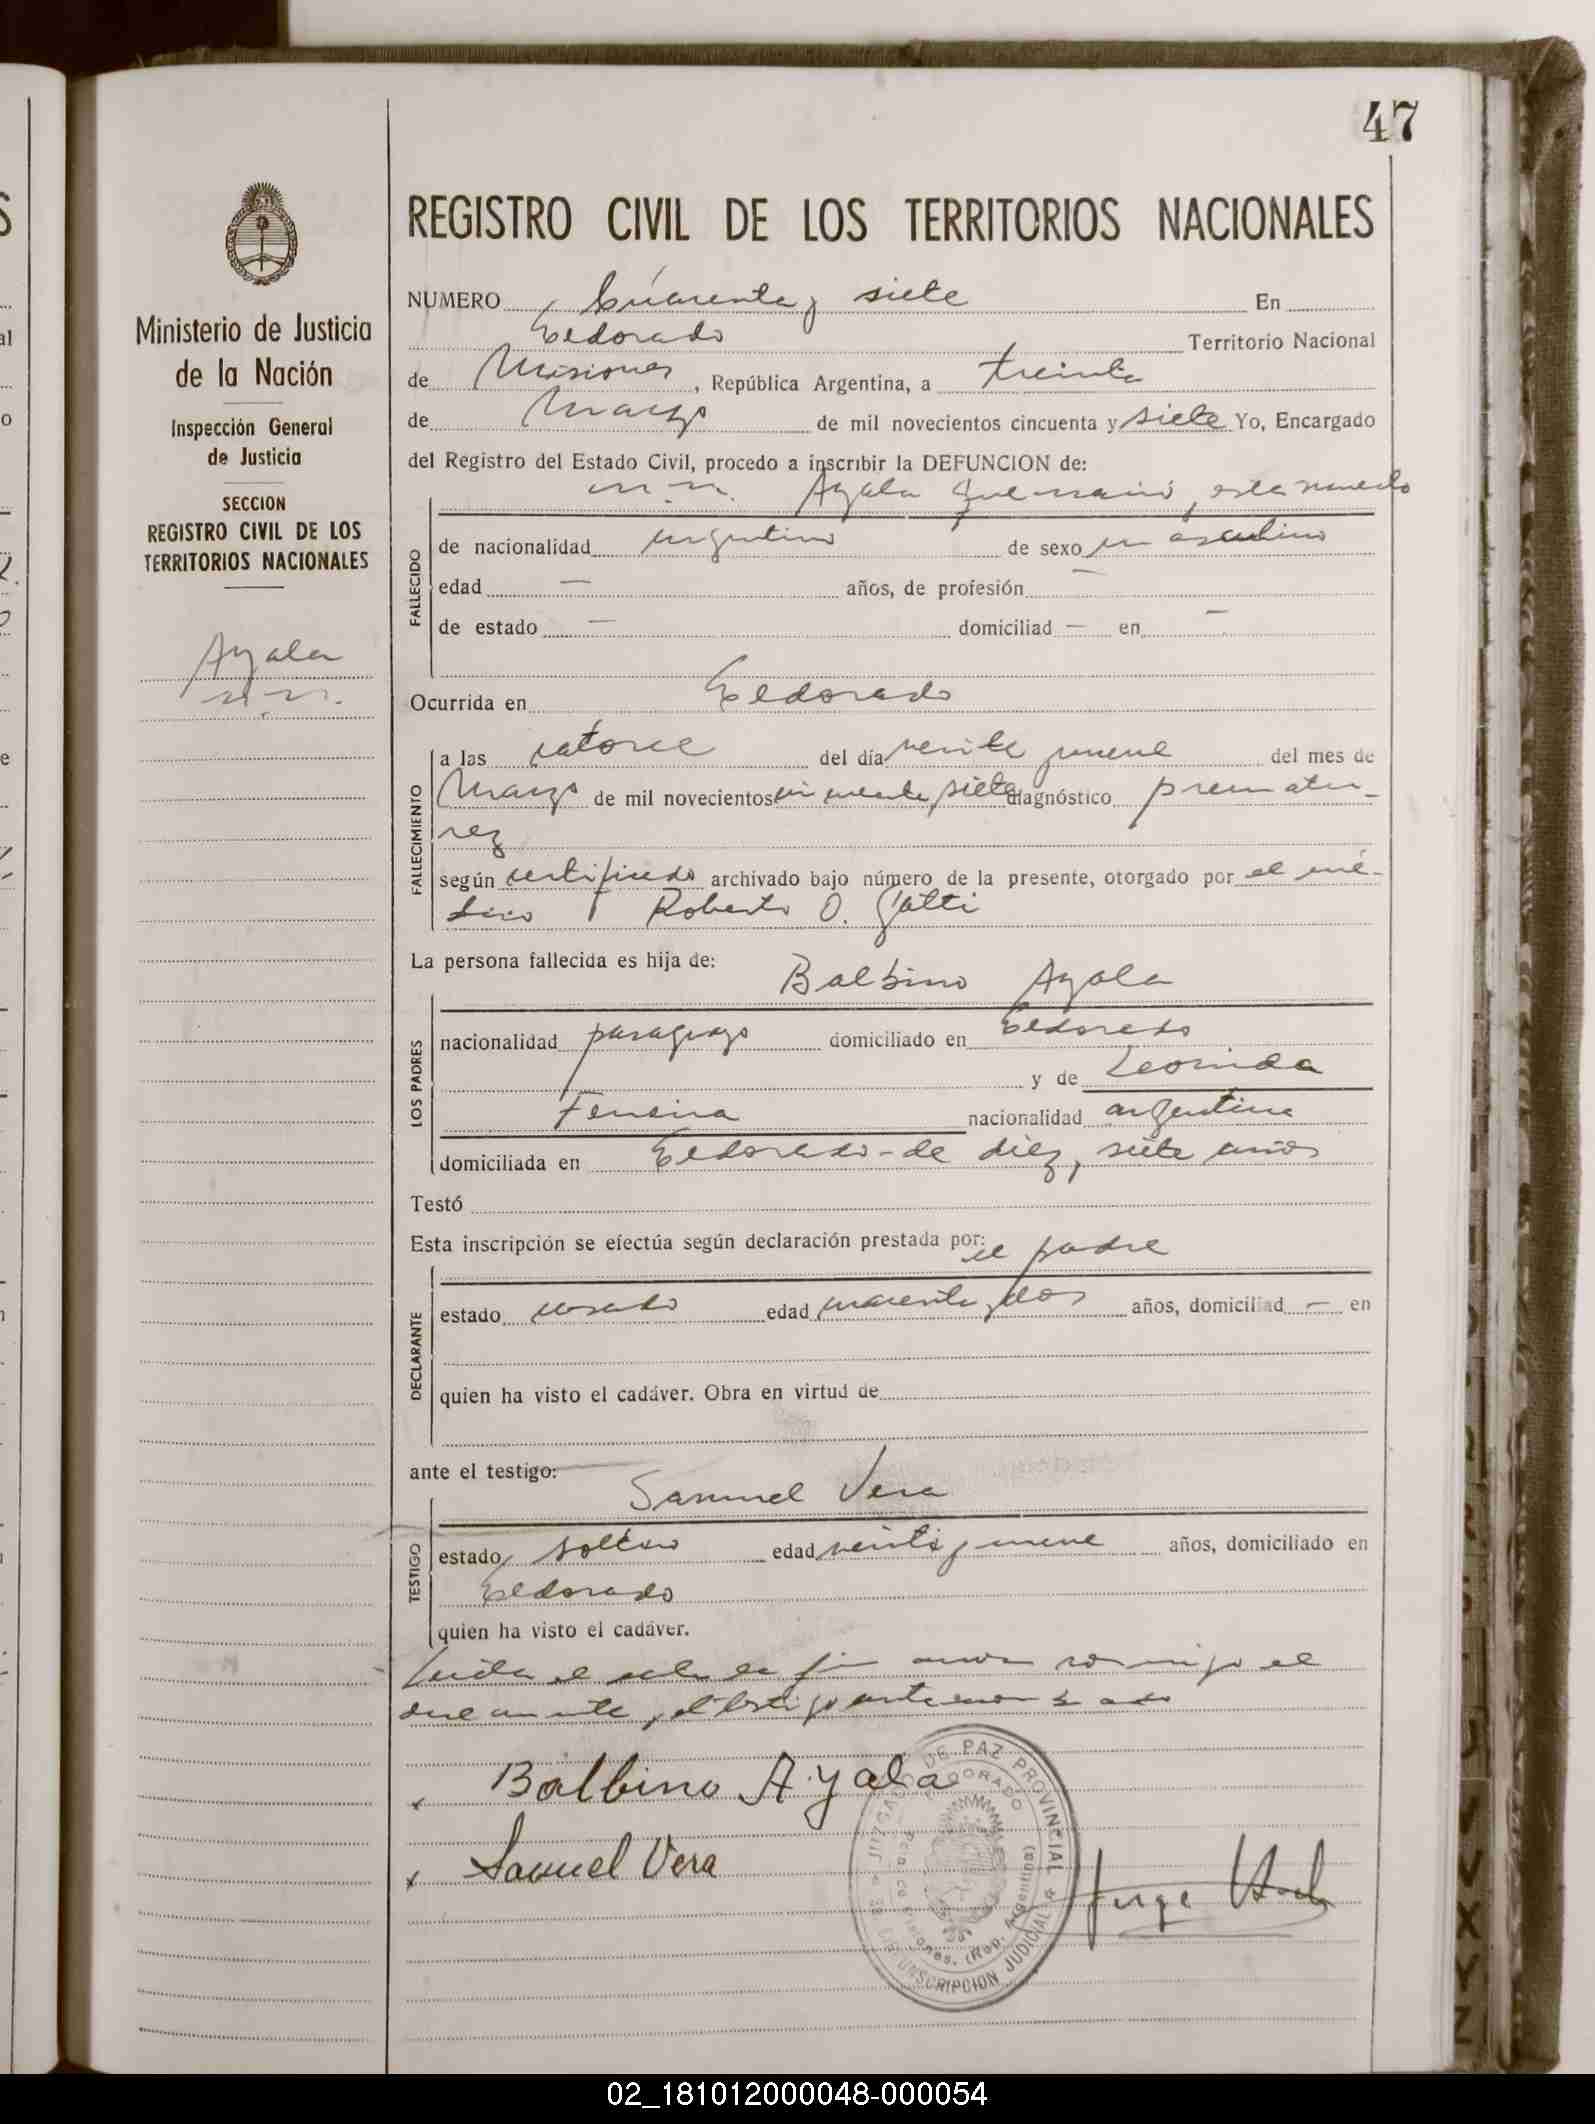 47
REGISTRO CIVIL DE LOS TERRITORIOS NACIONALES
Ministerio de Justicia
de la Nación
Inspección General
de Justicia
SECCION
REGISTRO CIVIL DE LOS
TERRITORIOS NACIONALES
Ayala
n.n.
NUMERO Cuarenta y siete En
Eldorado Territorio Nacional
de Misiones, República Argentina, a treinta
de Marzo de mil novecientos cincuenta y siete Yo, Encargado
del Registro del Estado Civil, procedo a inscribir la DEFUNCION de:
n.n. Ayala
FALLECIDO
de nacionalidad argentino de sexo masculino
edad — años, de profesión —
de estado — domiciliad — en —
Ocurrida en Eldorado
FALLECIMIENTO
a las catorce del día veinte y nueve del mes de
Marzo de mil novecientos cincuenta y siete diagnóstico prematu-
rez
según certificado archivado bajo número de la presente, otorgado por el mé-
dico Roberto O. Gatti
La persona fallecida es hija de:
Balbino Ayala
LOS PADRES
nacionalidad paraguayo domiciliado en Eldorado
y de Leonida
Ferreira nacionalidad argentina
domiciliada en Eldorado - de diez y siete años
Testó
Esta inscripción se efectúa según declaración prestada por: el padre
DECLARANTE
estado casado edad cuarenta y dos años, domiciliad — en
quien ha visto el cadáver. Obra en virtud de
ante el testigo:
Samuel Vera
TESTIGO
estado soltero edad veinte y nueve años, domiciliado en
Eldorado
quien ha visto el cadáver.
Leida el acta la firman conmigo el
declarante y el testigo antes mencionado
Balbino Ayala
Samuel Vera
Jorge
JUZGADO DE PAZ PROVINCIAL
ELDORADO
(Rep. Argentina)
CIRCUNSCRIPCION JUDICIAL
02_181012000048-000054